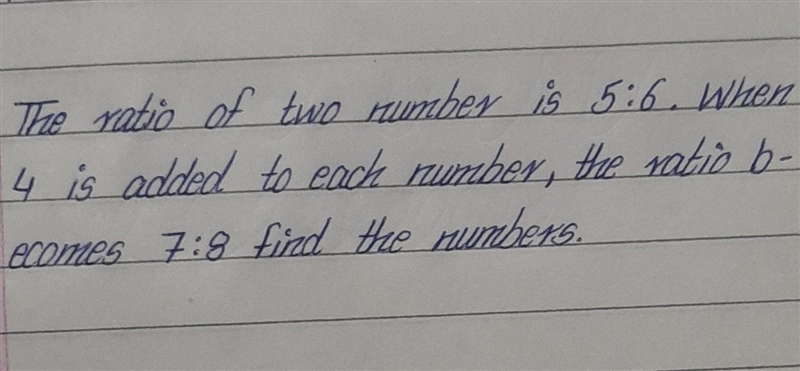 The ratio of two number is 5:6. When
4 is added to each number, the ratio b-
ecomes 7:8 find the numbers.